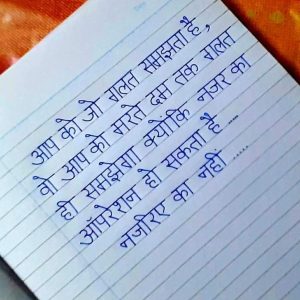 आप को जो ग़लत समझता है,
वो आप को मरते दम तक ग़लत
ही समझेगा क्योंकि नज़र का
ऑपरेशन हो सकता है ....
नज़रिए का नहीं .....